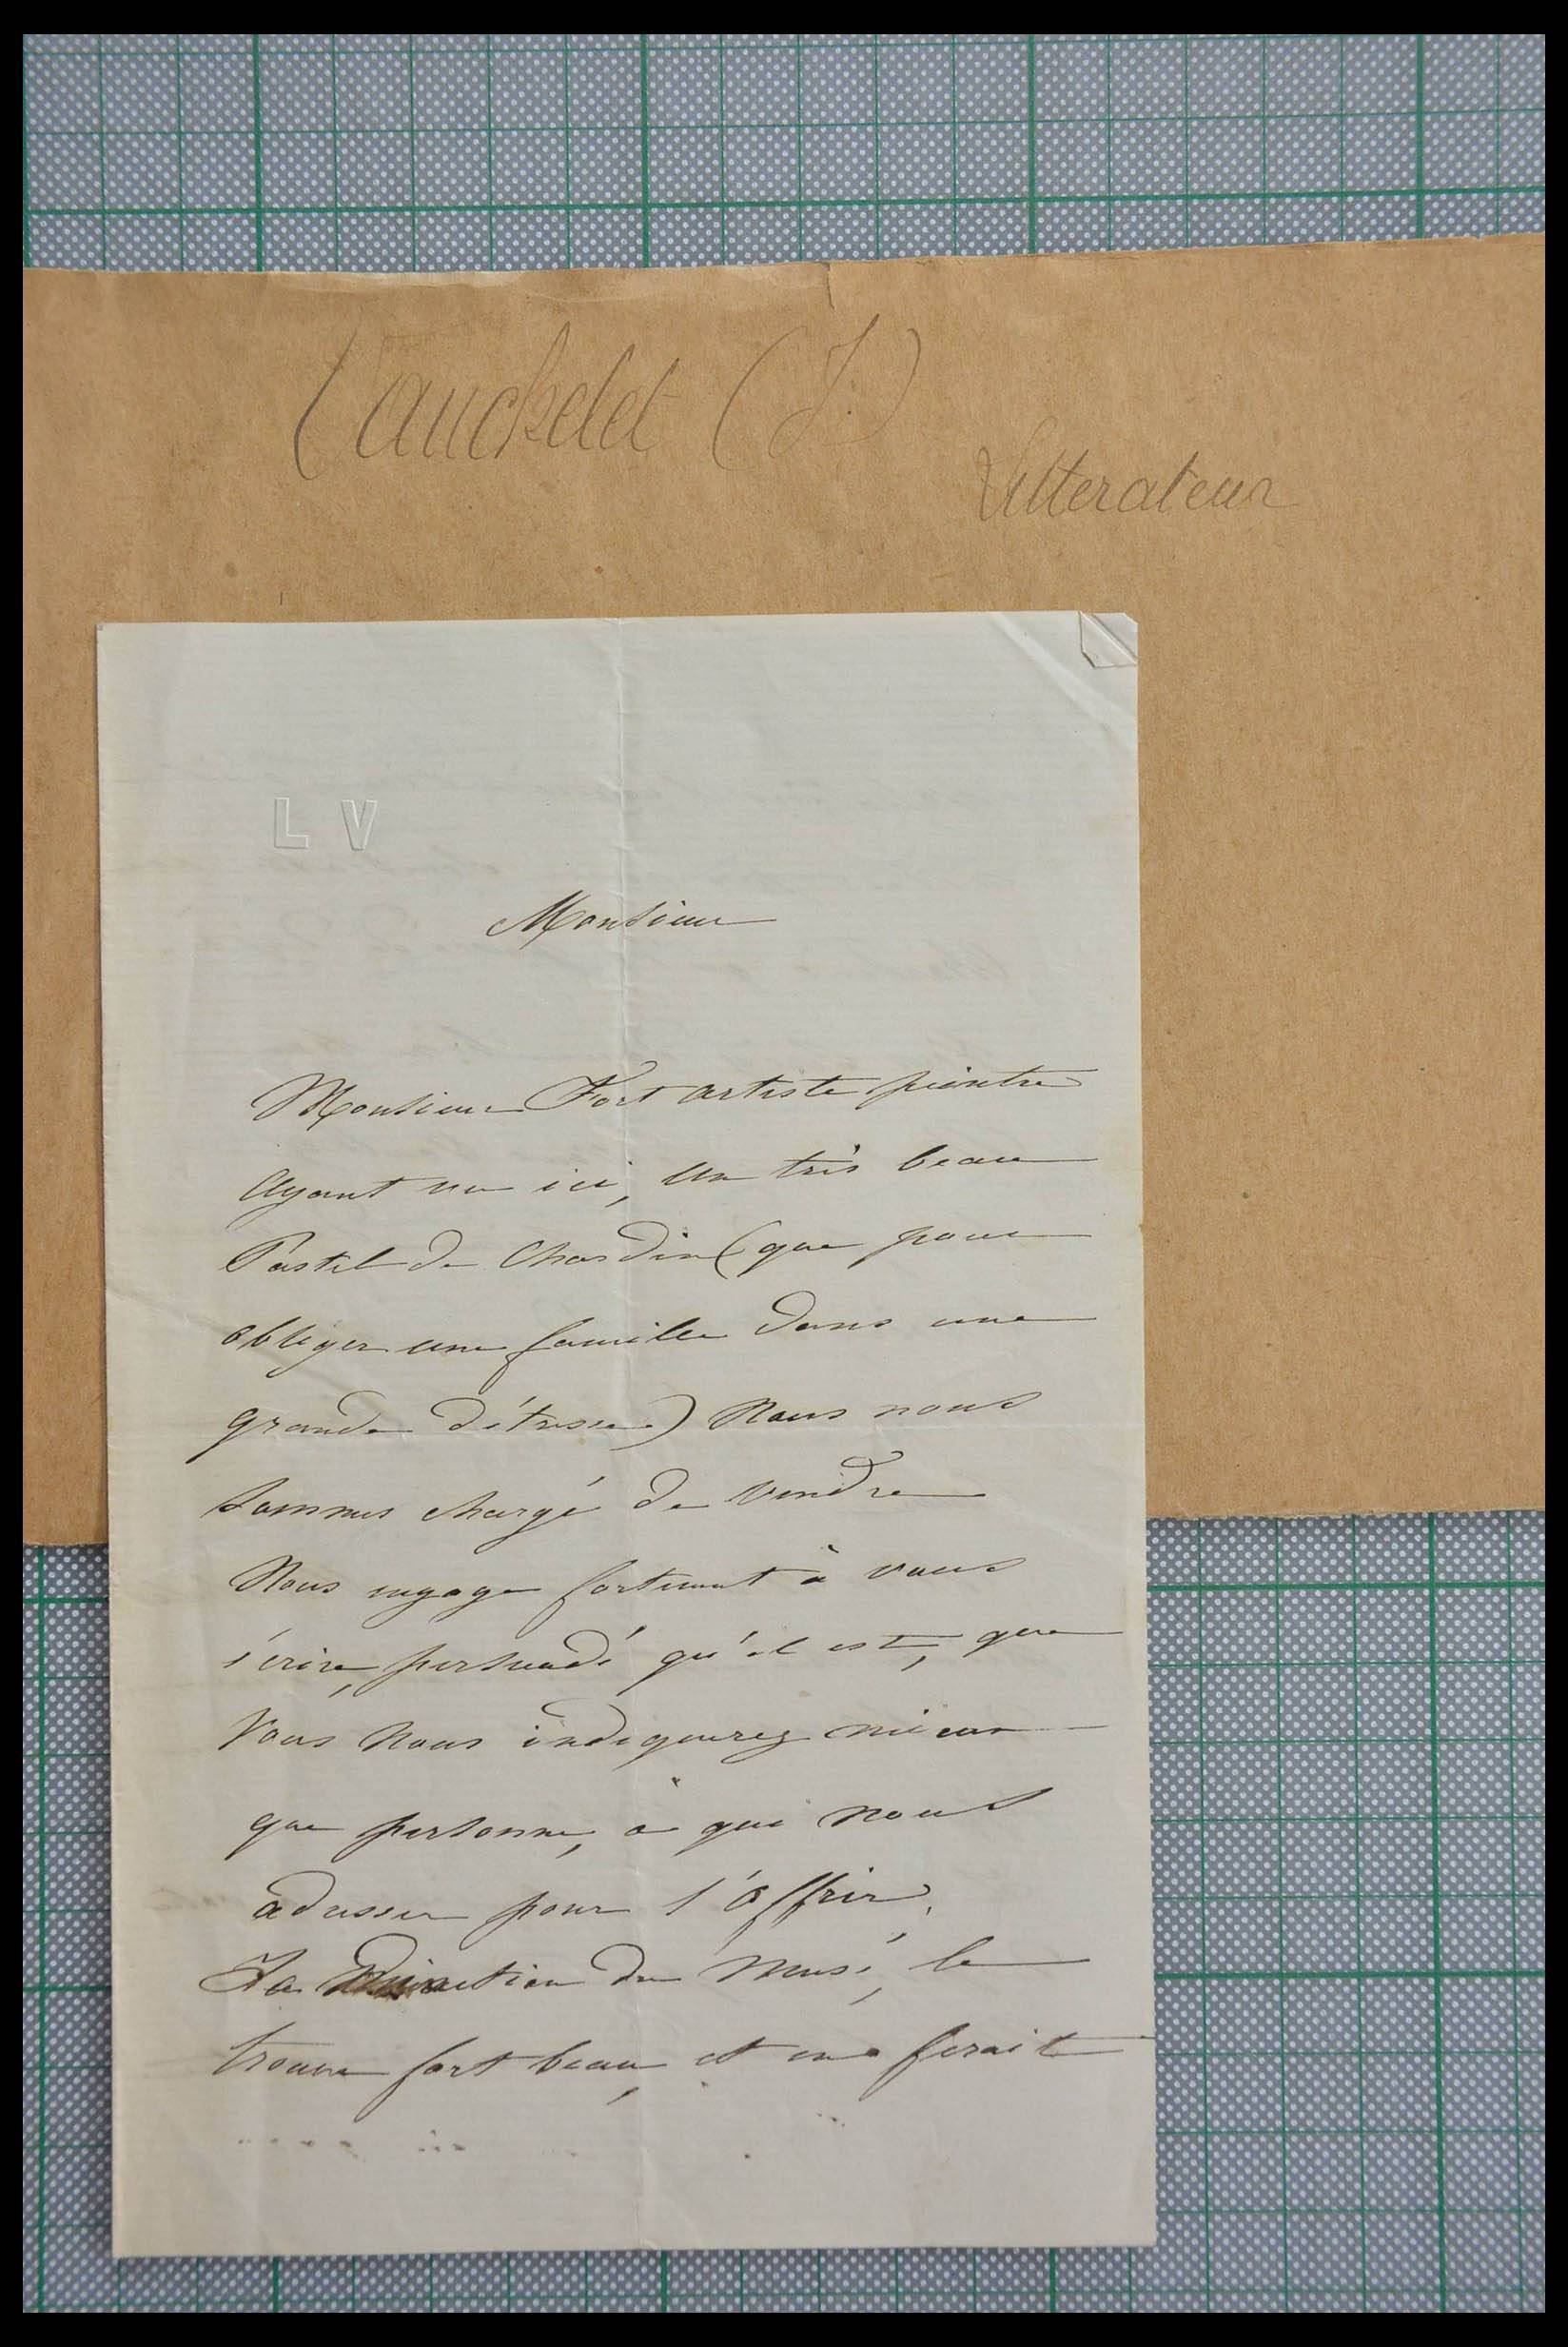 Vauchelet (J.)
Litterateur
L V
Monsieur
Monsieur Fort artiste peintre
Ayant vu ici, un très beau
Pastel de Chardin (que pour
obliger une famille dans une
grande détresse) Nous nous
sommes chargé de vendre
Nous engage fortement à vous
écrire, persuadé qu'il est, que
Vous Nous indiquerez mieux
que personne, à qui nous
adresser pour l'offrir.
La Direction du Musé, le
trouve fort beau, et en ferait